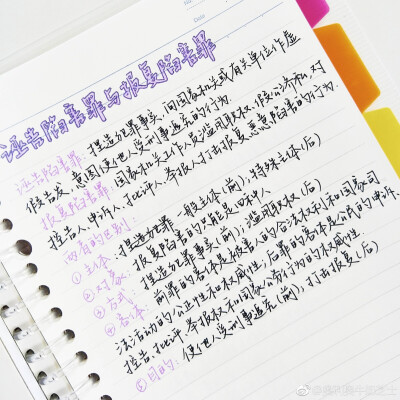 No.
Date
诬告陷害罪与报复陷害罪
诬告陷害罪: 捏造犯罪事实,向国家机关或有关单位作虚
假告发,意图使他人受刑事追究的行为.
报复陷害罪: 国家机关工作人员滥用职权、假公济私,对
控告人、申诉人、批评人、举报人打击报复陷害的行为.
两者的区别:
①主体: 一般主体(前);特殊主体(后)
②对象: 报复陷害的只能是四种人
③方式: 捏造犯罪事实(前);滥用职权(后)
④客体: 前罪的客体是被害人的合法权利和国家司
法活动的公正性和权威性;后罪的客体是公民的申诉、
控告、批评、举报权和国家公务行为的权威性
⑤目的: 使他人受刑事追究(前);打击报复(后)